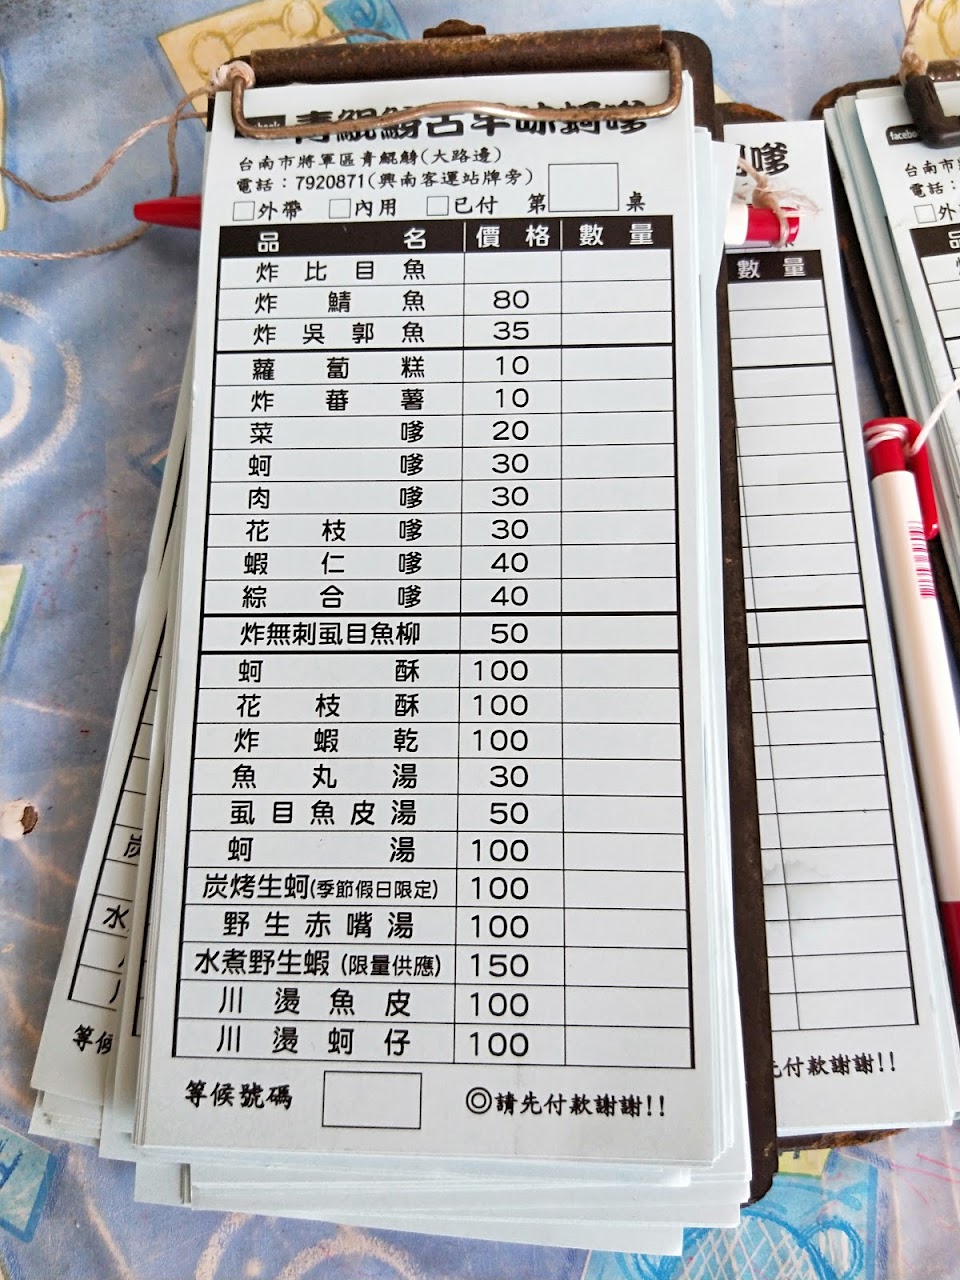 青鯤鯓古早味蚵嗲
台南市將軍區青鯤鯓(大路邊)
電話：7920871(興南客運站牌旁)
□外帶 □內用 □已付 第 桌
品名 價格 數量
炸比目魚
炸鯖魚 80
炸吳郭魚 35
蘿蔔糕 10
炸蕃薯 10
菜嗲 20
蚵嗲 30
肉嗲 30
花枝嗲 30
蝦仁嗲 40
綜合嗲 40
炸無刺虱目魚柳 50
蚵酥 100
花枝酥 100
炸蝦乾 100
魚丸湯 30
虱目魚皮湯 50
蚵湯 100
炭烤生蚵(季節假日限定) 100
野生赤嘴湯 100
水煮野生蝦(限量供應) 150
川燙魚皮 100
川燙蚵仔 100
等候號碼 ◎請先付款謝謝!!
嗲
數量
付款謝謝!!
等
水
facebo
台南市
電話：
□外